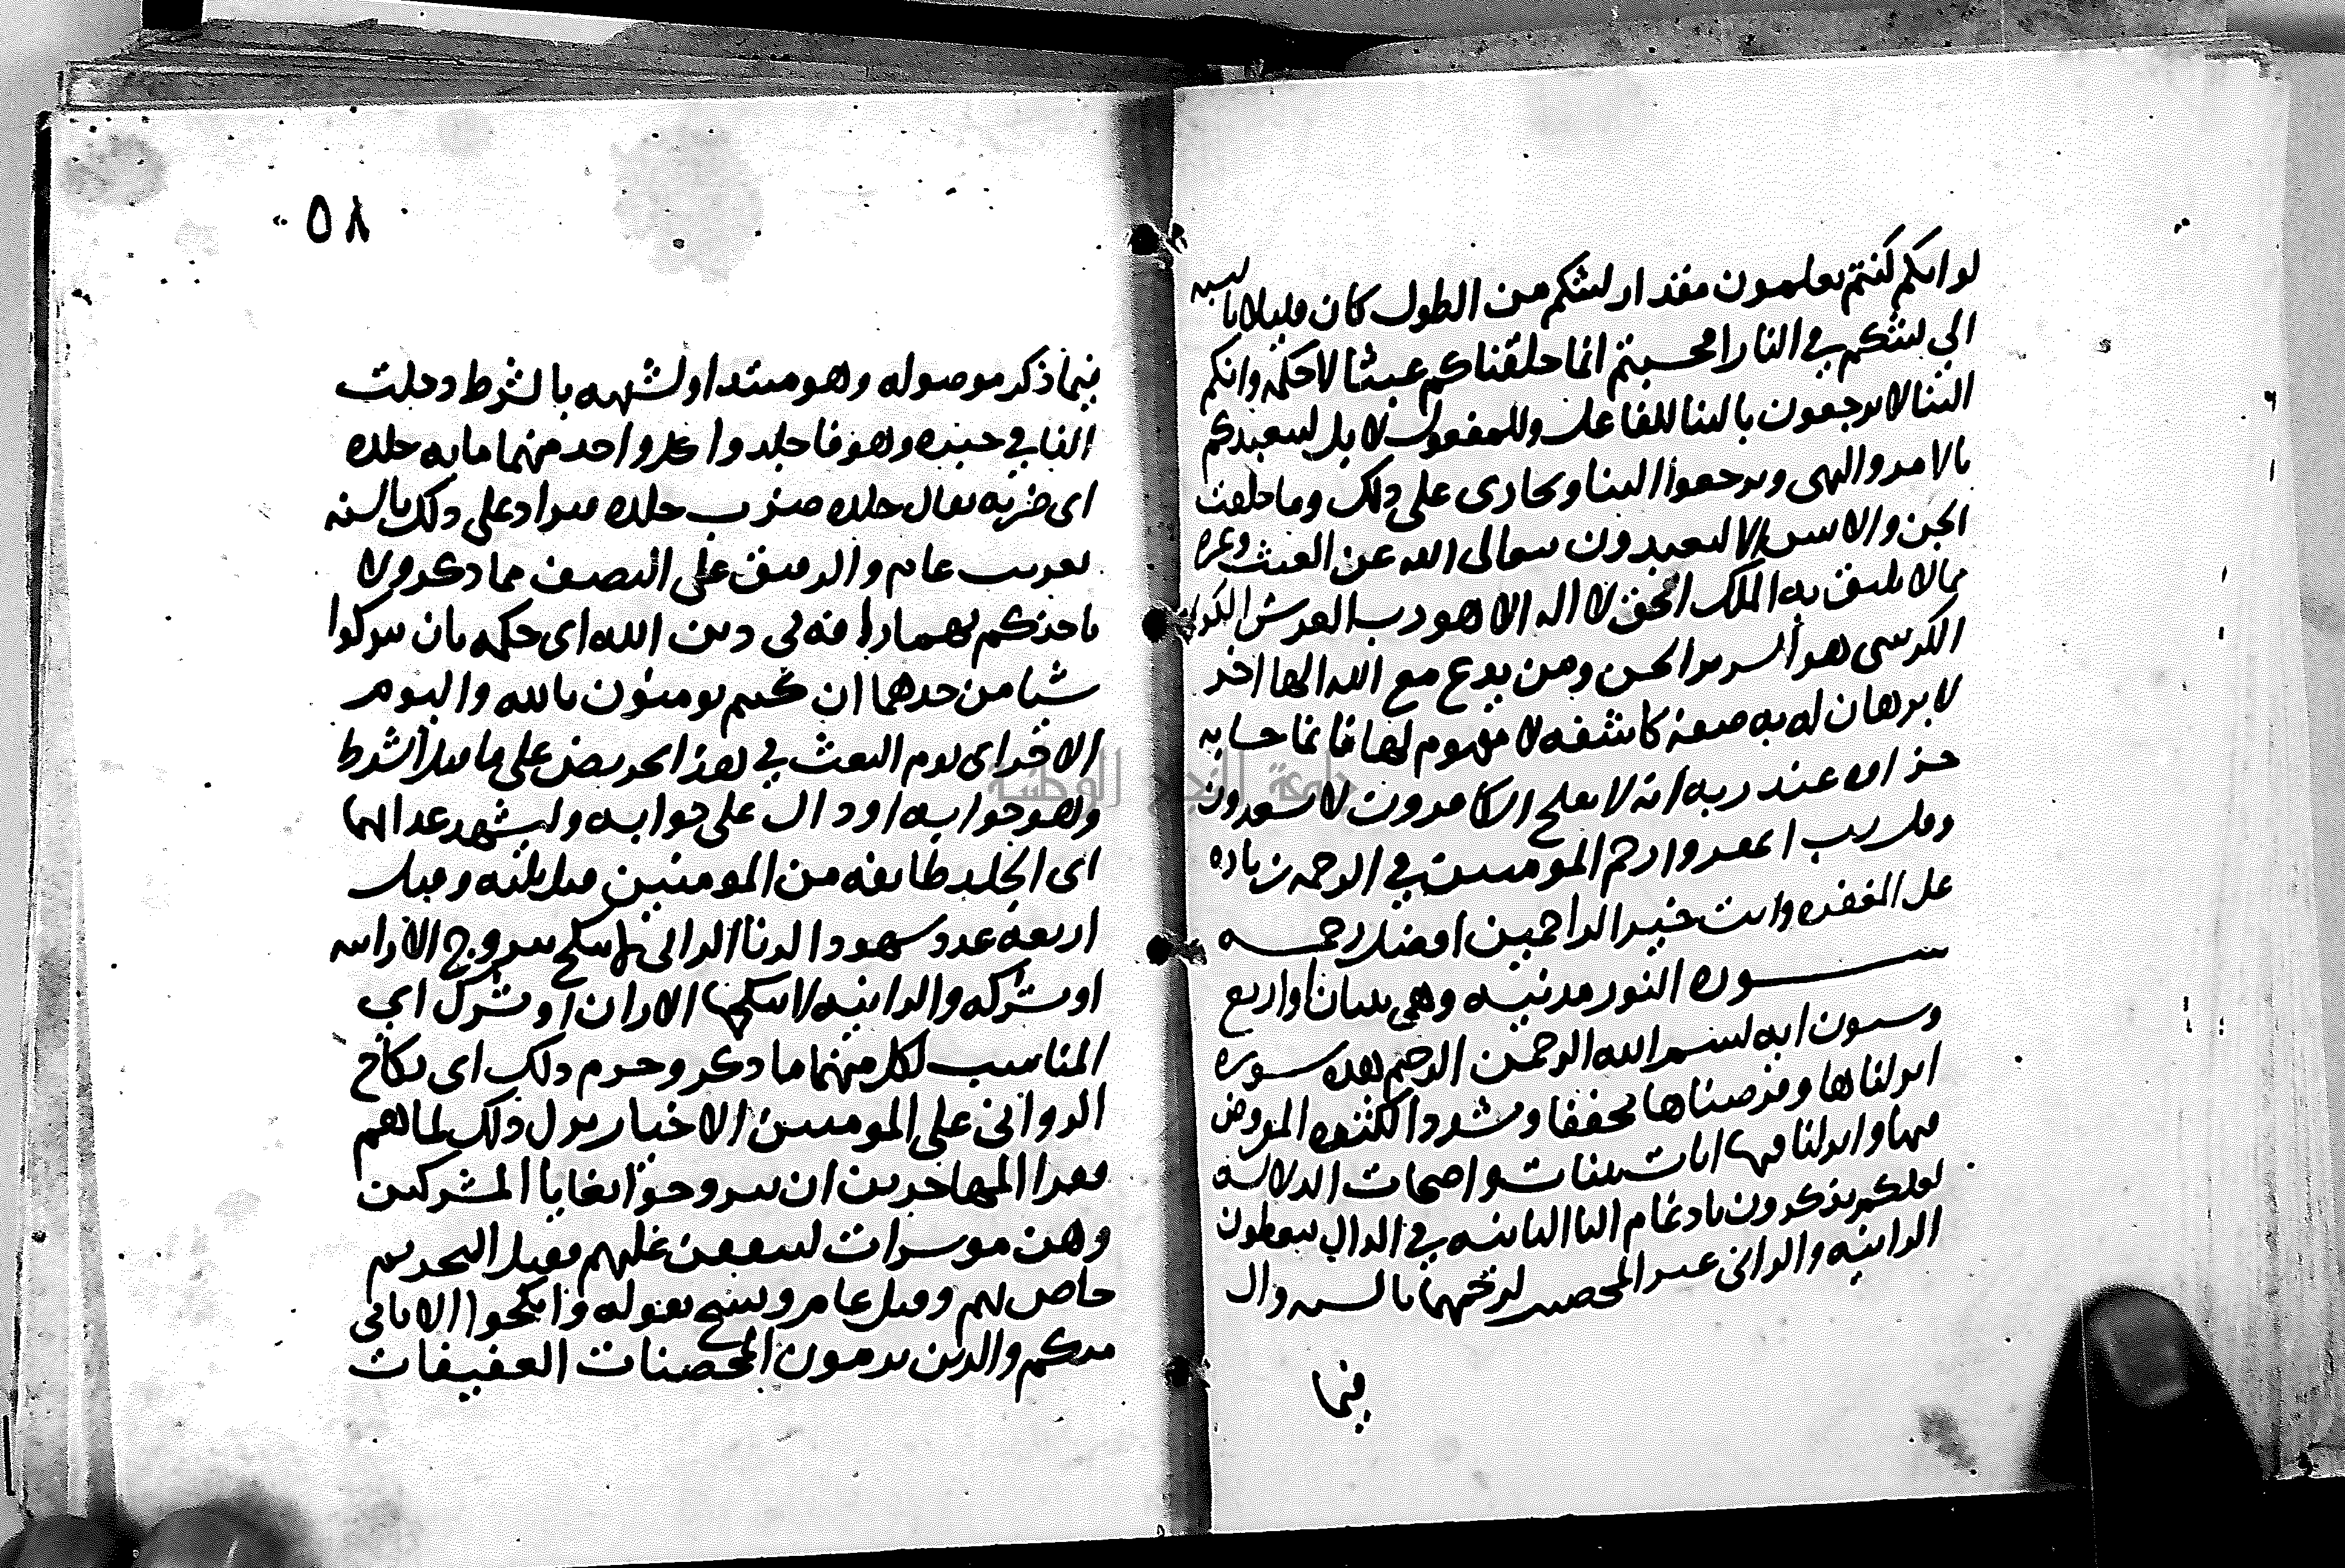 لو انكم كنتم تعلمون مقدار لبثكم من الطول كان قليلا بالنسبه
الي لبثكم في النار افحسبتم انما خلقناكم عبثا لا لحكمه وانكم
الينا لا ترجعون بالبنا للفاعل وللمفعول لا بل لنتعبدكم
بالامر والنهى وترجعوا الينا ونجازى على ذلك وما خلقت
الجن والانس الا ليعبدون فتعالى الله عن العبث وغيره
مما لا يليق به الملك الحق لا اله الا هو رب العرش الكريم
الكرسى هو السرير الحسن ومن يدع مع الله الها اخر
لا برهان له به صفة كاشفه لا مفهوم لها فانما حسابه
جزاوه عند ربه انه لا يفلح الكافرون لا يسعدون
وقل رب اغفر وارحم المومنين في الرحمه زياده
على المغفره وانت خير الراحمين افضل رحمه
سوره النور مدنيه وهى ثنتان او اربع
وستون ايه بسم الله الرحمن الرحيم هذه سوره
انزلناها وفرضناها مخففا ومشددا لكثره المفروض
فيها وانزلنا فيها ايات بينات واضحات الدلاله
لعلكم تذكرون بادغام التا الثانيه في الدال تتعظون
الزانيه والزانى غير المحصنين لرجمهما بالسنه وال
فيما
٥٨
فيما ذكر موصوله وهو مبتدا ولشبهه بالشرط دخلت
الفا في خبره وهو فاجلدوا كل واحد منهما مايه جلده
اى ضربه يقال جلده ضرب جلده ويزاد على ذلك بالسنه
تغريب عام والرقيق على النصف مما ذكر ولا
تاخذكم بهما رافه في دين الله اى حكمه بان تتركوا
شيا من حدهما ان كنتم تومنون بالله واليوم
الاخر اى يوم البعث في هذا تحريض على ما قبل الشرط
وهو جوابه او دال على جوابه وليشهد عذابهما
اى الجلد طايفه من المومنين قيل ثلثه وقيل
اربعه عدد شهود الزنا الزانى لا ينكح يتزوج الا زانيه
او مشركه والزانيه لا ينكحها الا زان او مشرك اي
المناسب لكل منهما ما ذكر وحرم ذلك اى نكاح
الزوانى على المومنين الاخيار نزل ذلك لما هم
فقرا المهاجرين ان يتزوجوا بغايا المشركين
وهن موسرات لينفقن عليهم فقيل التحريم
خاص بهم وقيل عام ونسخ بقوله وانكحوا الايامى
منكم والذين يرمون المحصنات العفيفات
جامعة النجاح الوطنية